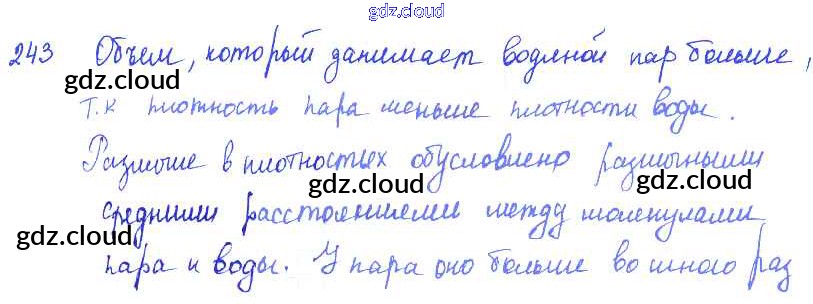 gdz.cloud
243 Объем, который занимает водяной пар больше,
gdz.cloud
т.к плотность пара меньше плотности воды.
Различие в плотностях обусловлено различными
gdz.cloud
средними расстояниями между молекулами
gdz.cloud gdz.cloud
пара и воды. У пара оно больше во много раз